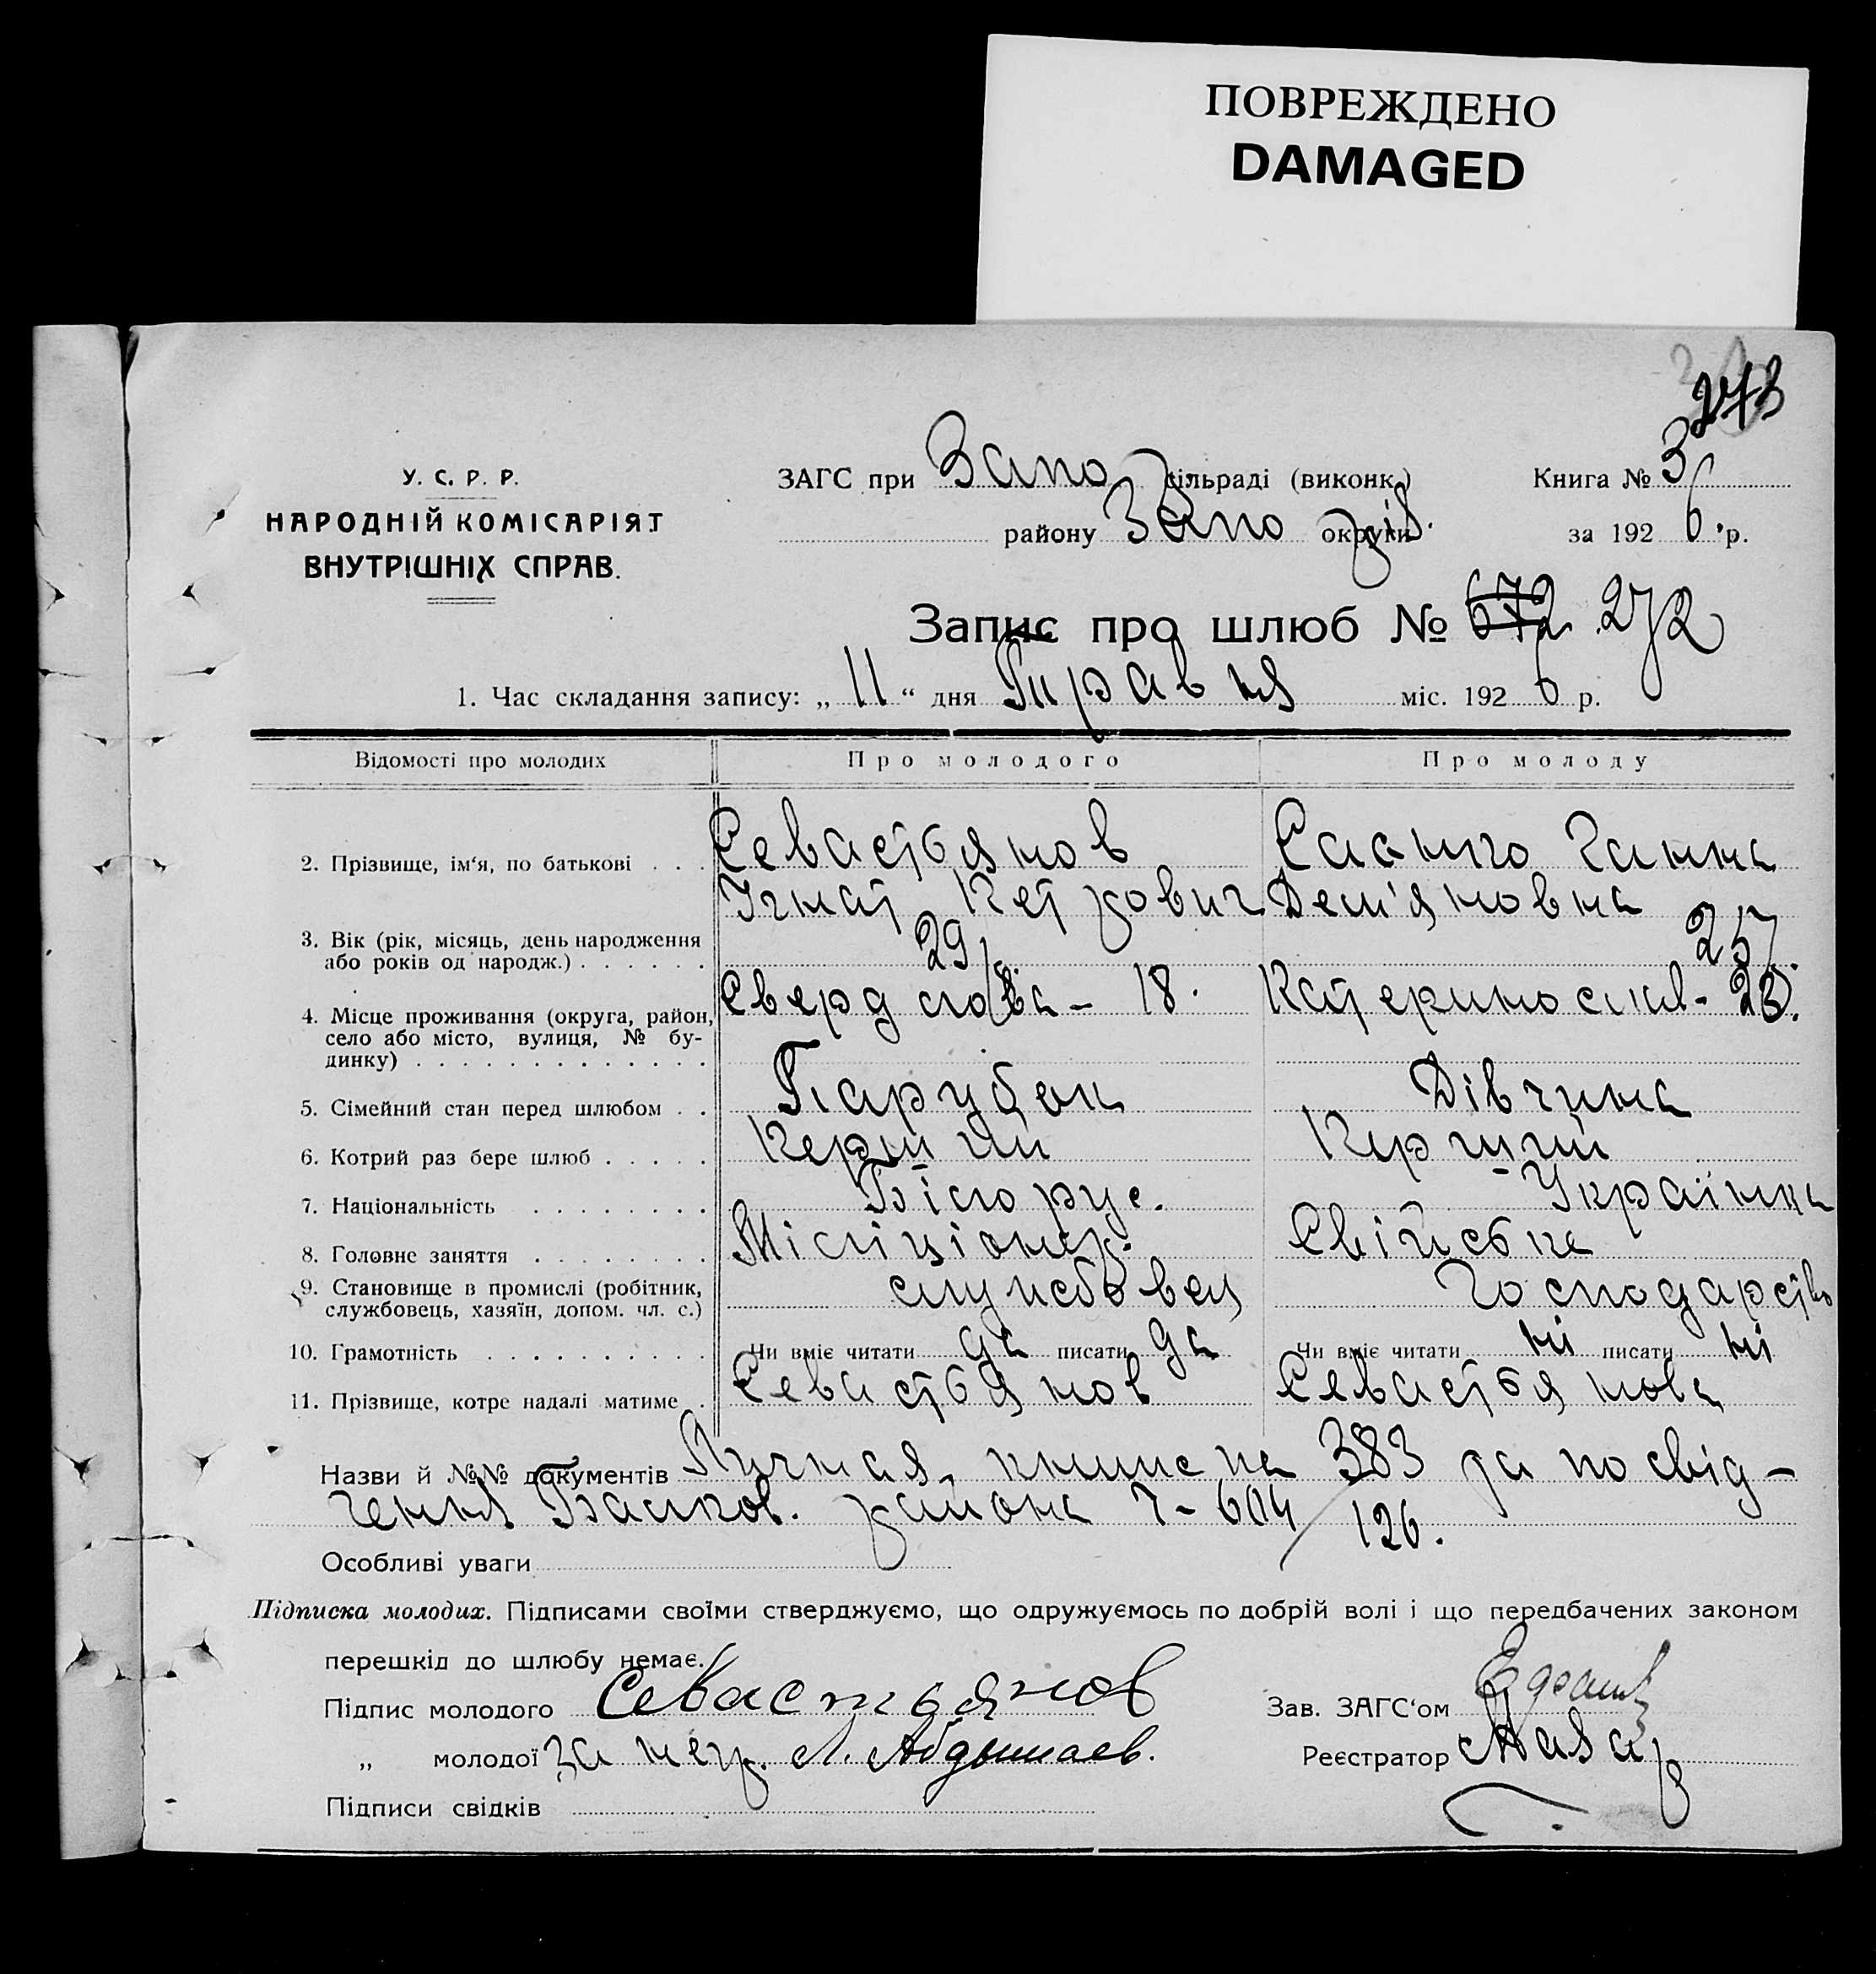 ПОВРЕЖДЕНО
DAMAGED
273
У. С. Р. Р.
НАРОДНІЙ КОМІСАРІЯТ
ВНУТРІШНІХ СПРАВ.
ЗАГС при Запо сільраді (виконк.) Книга № 3
району Запо округи за 1926 р.
Запис про шлюб № 672 272
1. Час складання запису: „11“ дня Травня міс. 1926 р.
Відомості про молодих Про молодого Про молоду
2. Прізвище, ім‘я, по батькові Севастьянов Ганна
Ігнат Петрович Дем'яновна
3. Вік (рік, місяць, день народження 29 25
або років од народж.)
4. Місце проживання (округа, район, Свердлова - 18. Катеринослав- 23.
село або місто, вулиця, № бу-
динку)
5. Сімейний стан перед шлюбом Парубок Дівчина
6. Котрий раз бере шлюб Перший Перший
7. Національність Білорус. Українка
8. Головне заняття Міліціонер. Свійське
9. Становище в промислі (робітник, службовец господарство
службовець, хазяїн, допом. чл. с.)
10. Грамотність Чи вміє читати да писати да Чи вміє читати ні писати ні
11. Прізвище, котре надалі матиме Севастьянов Севастьянова
Назви й №№ документів книжка 383 та посвід-
чення района 7-604/126.
Особливі уваги
Підписка молодих. Підписами своїми стверджуємо, що одружуємось по добрій волі і що передбачених законом
перешкід до шлюбу немає.
Підпис молодого Севастьянов Зав. ЗАГС‘ом
„ молодої за негр. Реєстратор
Підписи свідків